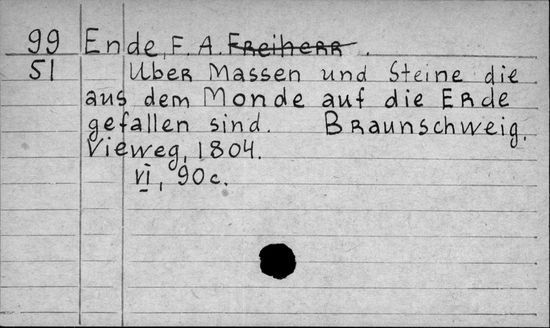 99 Ende, F. A. Freiherr.
51 Uber Massen und Steine die
aus dem Monde auf die Erde
gefallen sind. Braunschweig,
Vieweg, 1804.
VI, 90 c.